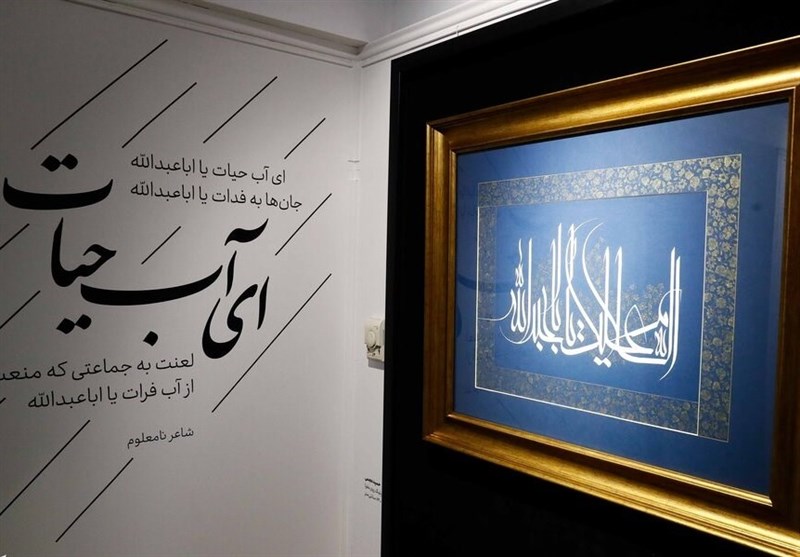 ای آب حیات یا اباعبدالله
جان‌ها به فدات یا اباعبدالله
ای آب حیات
لعنت به جماعتی که منعت
از آب فرات یا اباعبدالله
شاعر نامعلوم
السلام علیک یا اباعبدالله